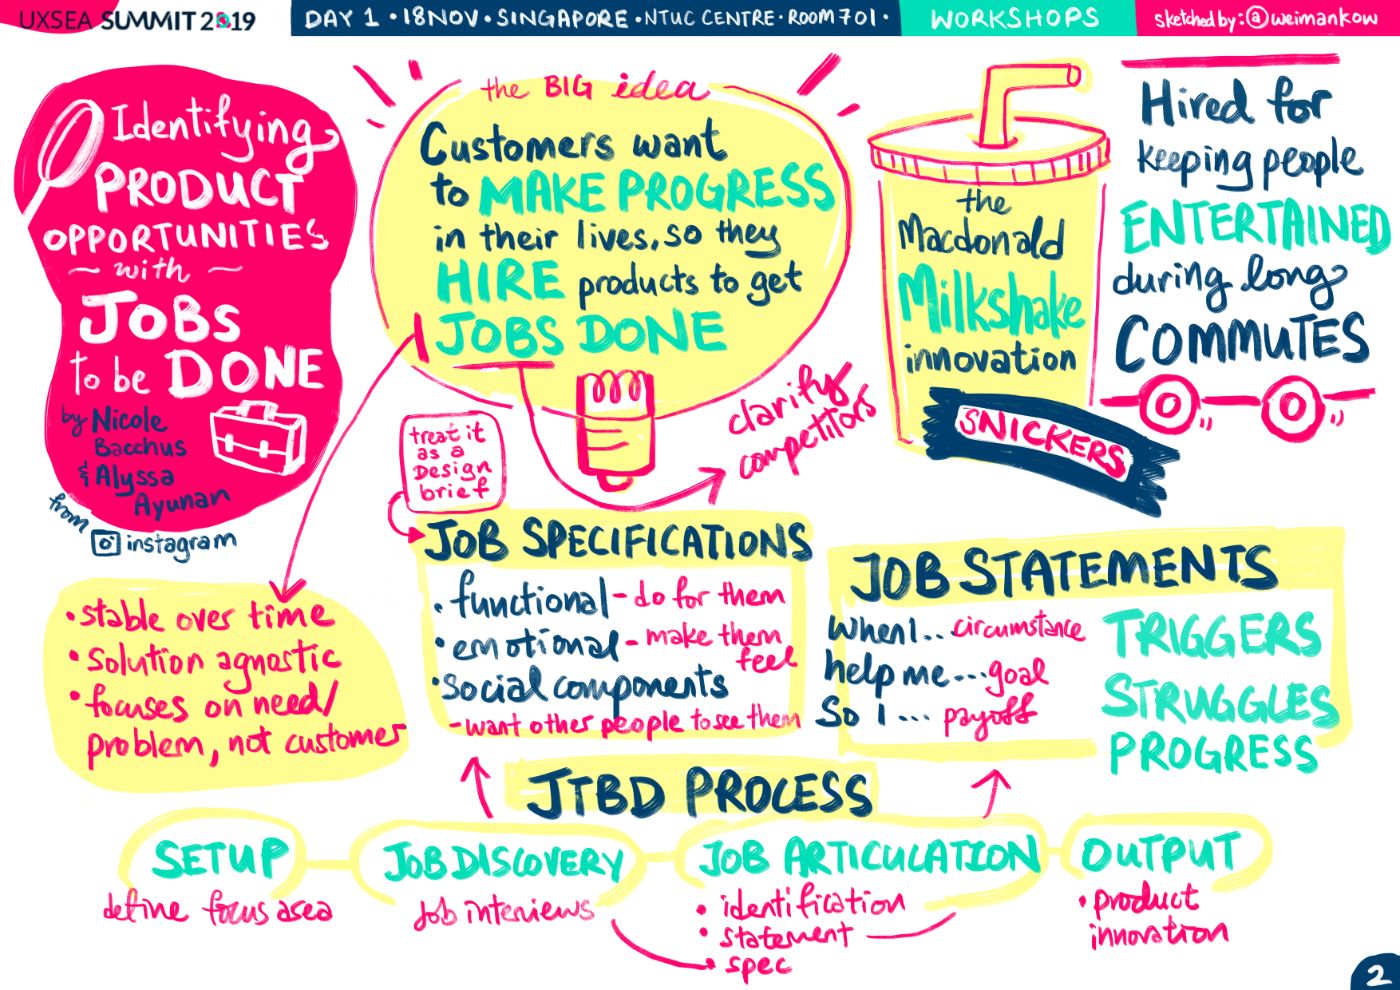 UXSEA SUMMIT 2019
DAY 1 • 18NOV • SINGAPORE • NTUC CENTRE • ROOM 701 •
WORKSHOPS
sketched by: @weimankow
Identifying
PRODUCT
OPPORTUNITIES
~ with ~
JOBS
to be DONE
by Nicole
Bacchus
& Alyssa
Ayunan
from
instagram
the BIG idea
Customers want
to MAKE PROGRESS
in their lives, so they
HIRE products to get
JOBS DONE
clarify
competitors
the
Macdonald
Milkshake
innovation
SNICKERS
Hired for
keeping people
ENTERTAINED
during long
COMMUTES
treat it
as a
Design
brief
• stable over time
• solution agnostic
• focuses on need/
problem, not customer
JOB SPECIFICATIONS
• functional - do for them
• emotional - make them
feel
• social components
- want other people to see them
JOB STATEMENTS
When I... circumstance
help me... goal
So I... payoff
TRIGGERS
STRUGGLES
PROGRESS
JTBD PROCESS
SETUP
define focus area
JOB DISCOVERY
Job interviews
JOB ARTICULATION
• identification
• statement
• spec
OUTPUT
• product
innovation
2